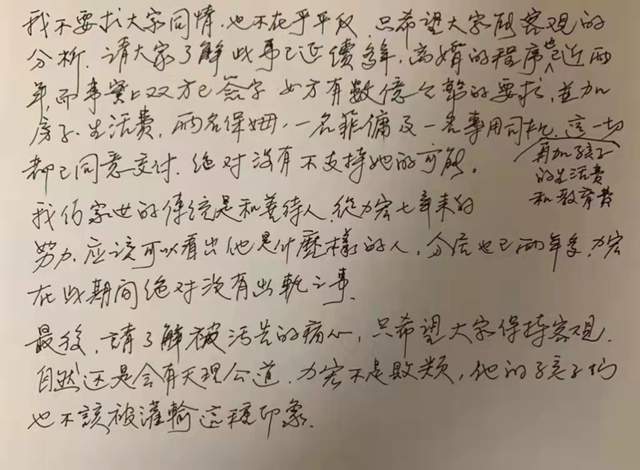 我不要求大家同情.也不在乎平反.只希望大家能客观的
分析.請大家了解此事已延續多年.离婚的程序也已近两
年,而事實上双方已簽字 女方有數億分離的要求,並加
房子.生活费.两名保姆.一名菲傭及一名專用司机.這一切
再加孩子
的生活费
和教育费
都已同意支付.绝对没有不支持她的可能.
我们家世的傳統是和善待人.從力宏七年来的
努力.应該可以看出他是什麼樣的人.分居也已兩年多.力宏
在此期间绝对没有出軌之事.
最後.請了解被污告的痛心.只希望大家保持客观.
自然还是会有天理公道.力宏不是敗類,他的孩子们
也不該被灌輸這種印象.